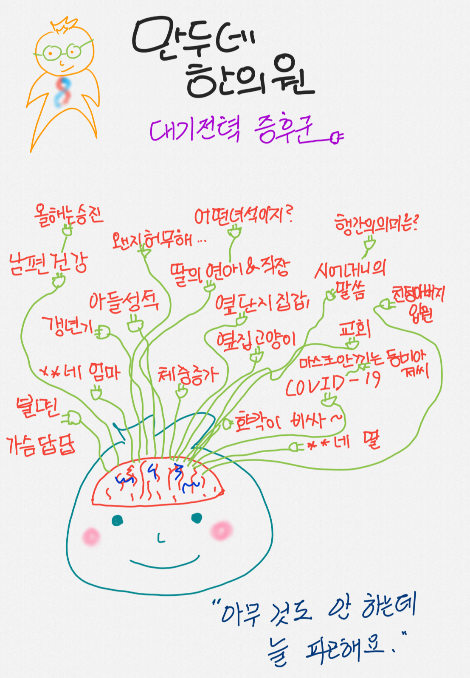 만두네
한의원
대기전력 증후군
올해는 승진
왠지허무해...
어떤녀석이지?
행간의 의미는?
남편 건강
딸의 연애 & 직장
시어머니의
말씀
친정아버지
입원
아들성적
갱년기
옆단지 집값
옆집고양이
교회
마스크 안끼는 동미아
저씨
COVID-19
**네 엄마
체중증가
불면
가슴 답답
한약이 비싸~
**네 딸
"아무 것도 안 하는데
늘 피곤해요."